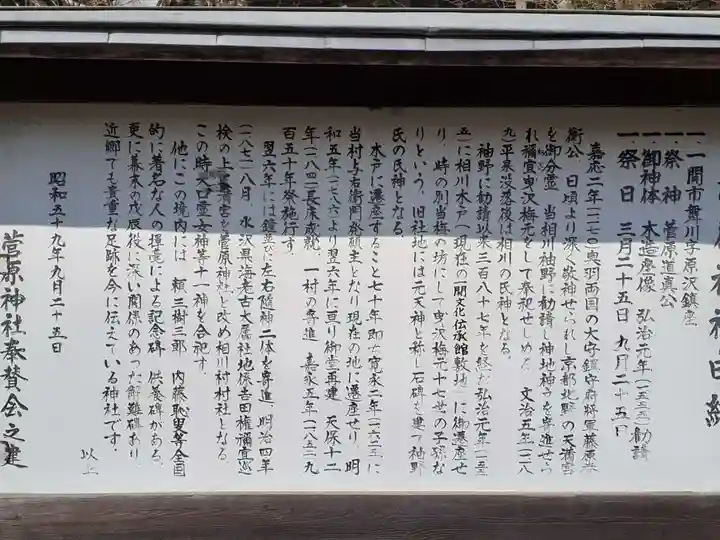 一、一関市舞川字原沢鎮座
一、祭神 菅原道真公
一、御神体 木造座像 弘治元年(一五五五)勧請
一、祭日 三月二十五日 九月二十五日
嘉応二年(一一七〇)奥羽両国の大守鎮守府将軍藤原秀
衡公 日頃より深く敬神せられし京都北野の天満宮
を御分霊 当相川袖野に勧請し神地神うを寄進せら
れ禰宜曳沢梅元をして奉祀せしめる 文治五年(一一八
九)平泉没落後は相川の氏神となる。
袖野に勧請以来三百八十七年を経た弘治元年(一五五
五)に相川木戸(現在の一関文化伝承館敷地)に御遷座せ
り、時の別当梅の坊にして曳沢梅元十七世の子孫な
りという、旧社地には元天神と称し石碑を建て袖野
氏の氏神となる。
木戸に遷座すること七十年 即ち寛永二年(一六二五)に
当村与右衛門発願主となり現在の地に遷座せり、明
和五年(一七六八)より翌六年に亘り御堂再建 天保十二
年(一八四一)長床成就、一村の寄進 嘉永五年(一八五二)九
百五十年祭施行す。
翌六年には鐘堂に左右随神二体を寄進 明治四年
(一八七一)八月 水沢県海老古大属社地係吉田権禰宜巡
検の上 宮を菅原神社と改め相川村村社となる
この時 八口霊女神等十一神を合祀す。
他にこの境内には 頼三樹三郎 内藤恥叟等全国
的に著名な人の撰書による記念碑 供養碑がある。
更に幕末の戊辰役に深い関係のあった解難碑あり
近郷でも貴重な足跡を今に伝えている神社です。
以上
昭和五十九年九月二十五日
菅原神社奉賛会之建